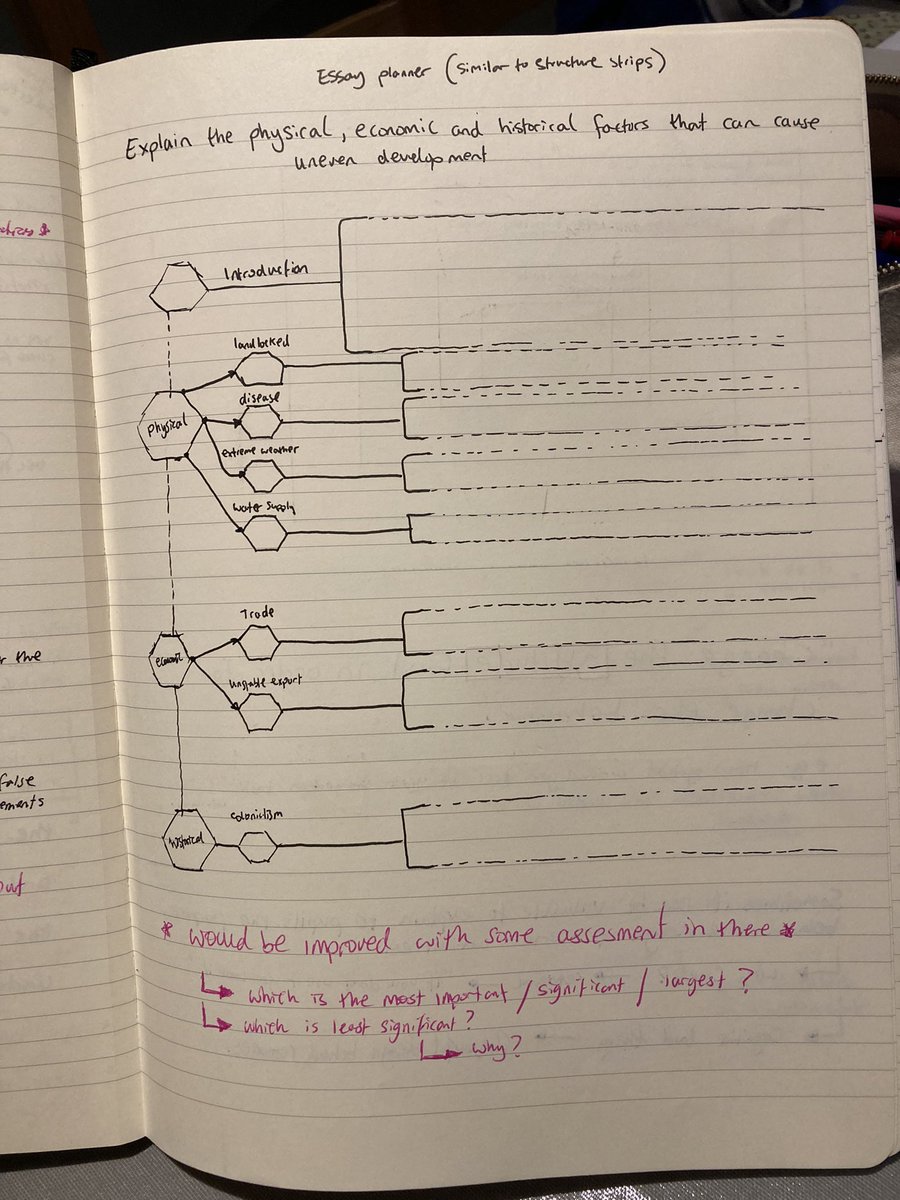 Essay planner (similar to structure strips)
Explain the physical, economic and historical factors that can cause
uneven development
Introduction
landlocked
Physical
disease
extreme weather
water supply
Trade
economic
unstable export
colonialism
historical
* would be improved with some assesment in there *
which is the most important / significant / largest ?
which is least significant ?
why ?
r the
false
ements
out